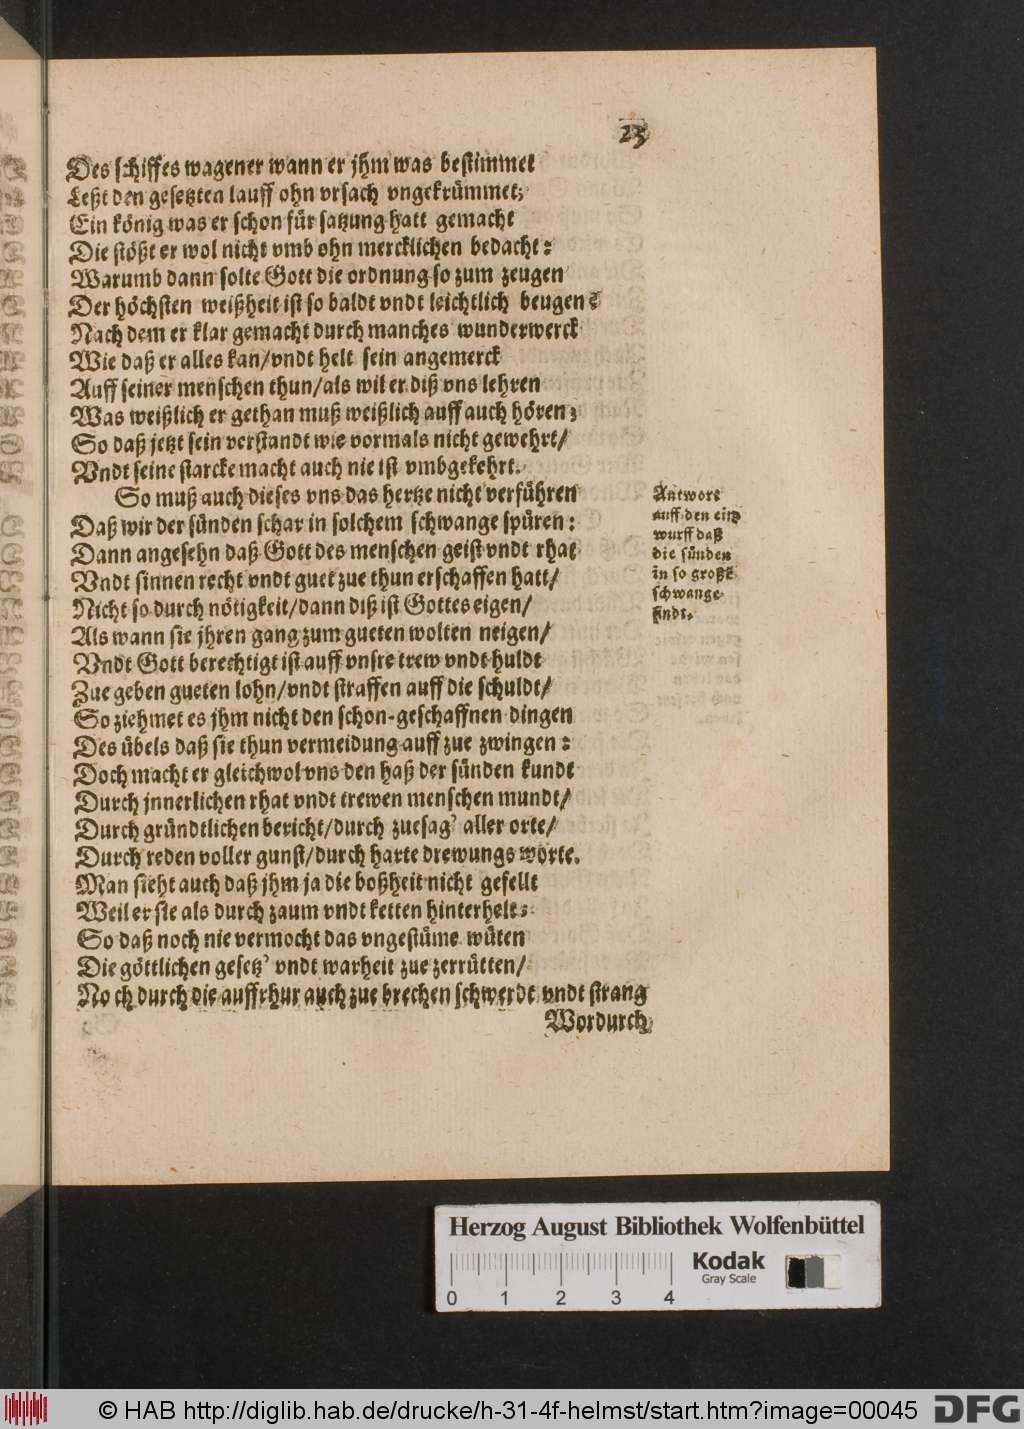 23
Des schiffes wagener wann er jhm was bestimmet
Leßt den gesetzten lauff ohn vrsach vngekrümmet;
Ein könig was er schon für satzung hatt gemacht
Die stößt er wol nicht vmb ohn mercklichen bedacht:
Warumb dann solte Gott die ordnung so zum zeugen
Der höchsten weißheit ist so baldt vndt leichtlich beugen?
Nach dem er klar gemacht durch manches wunderwerck
Wie daß er alles kan/vndt helt sein angemerck
Auff seiner menschen thun/als wil er diß vns lehren
Was weißlich er gethan muß weißlich auff auch hören;
So daß jetzt sein verstandt wie vormals nicht gewehrt/
Vndt seine starcke macht auch nie ist vmbgekehrt.
So muß auch dieses vns das hertze nicht verführen
Daß wir der sünden schar in solchem schwange spüren:
Dann angesehn daß Gott des menschen geist vndt rhat
Vndt sinnen recht vndt guet zue thun erschaffen hatt/
Nicht so durch nötigkeit/dann diß ist Gottes eigen/
Als wann sie jhren gang zum gueten wolten neigen/
Vndt Gott berechtigt ist auff vnsre trew vndt huldt
Zue geben gueten lohn/vndt straffen auff die schuldt/
So ziehmet es jhm nicht den schon-geschaffnen dingen
Des übels daß sie thun vermeidung auff zue zwingen:
Doch macht er gleichwol vns den haß der sünden kundt
Durch jnnerlichen rhat vndt trewen menschen mundt/
Durch gründtlichen bericht/durch zuesag' aller orte/
Durch reden voller gunst/durch harte drewungs worte.
Man sieht auch daß jhm ja die boßheit nicht gefellt
Weil er sie als durch zaum vndt ketten hinterhelt;
So daß noch nie vermocht das vngestüme wüten
Die göttlichen gesetz' vndt warheit zue zerrütten/
Noch durch die auffrhur auch zue brechen schwerdt vndt strang
Wordurch
Antwort
auff den ein⸗
wurff daß
die sünden
in so großē
schwange
sindt.
Herzog August Bibliothek Wolfenbüttel
0 1 2 3 4
Kodak
Gray Scale
© HAB http://diglib.hab.de/drucke/h-31-4f-helmst/start.htm?image=00045
DFG